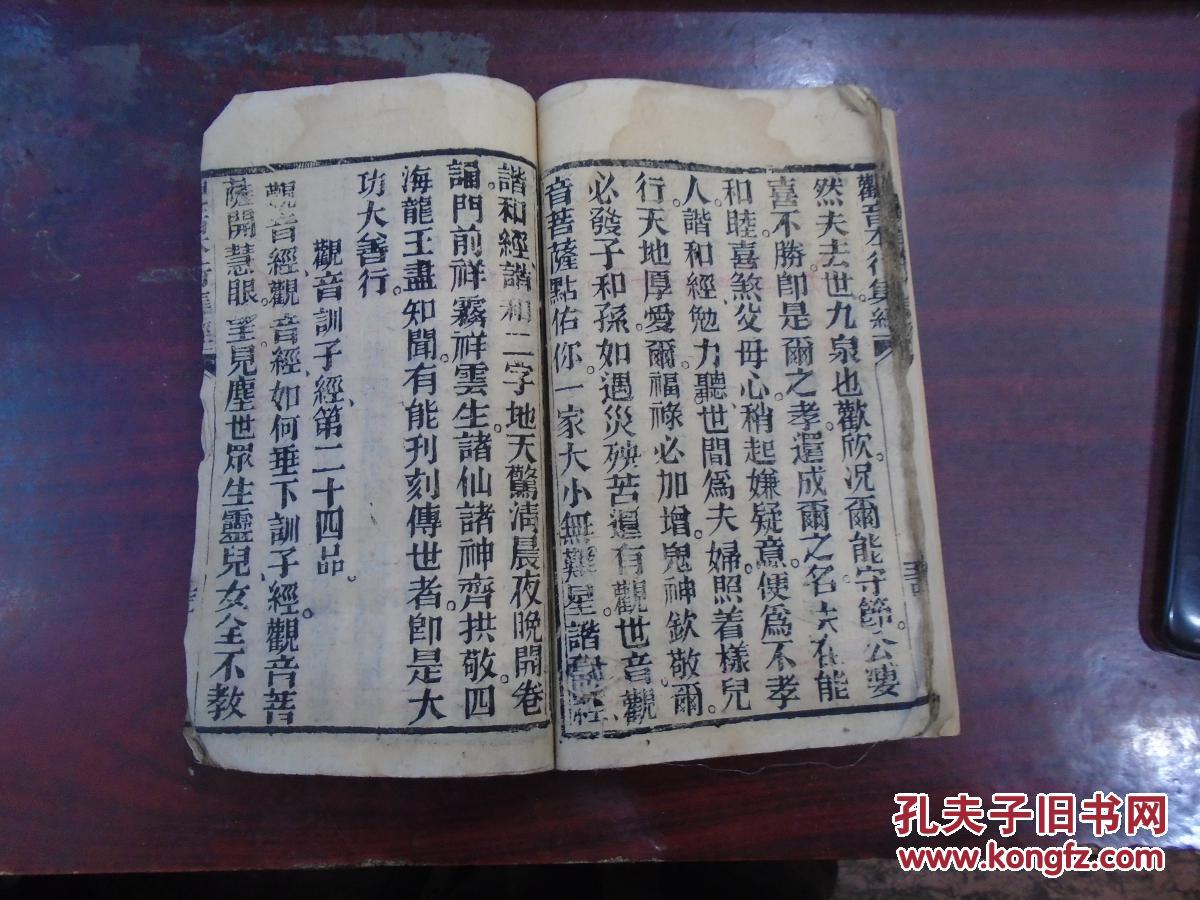 然夫去世九泉也歡欣。况爾能守節公婆
喜不勝。即是爾之孝還成爾之名夫在能
和睦。喜煞父母心、稍起嫌疑意。便爲不孝
人。諧和經勉力聽。世間爲夫婦。照着樣兒
行。天地厚愛爾。福祿必加增。鬼神欽敬爾。
必發子和孫。如遇災殃苦。還有觀世音。觀
音菩薩點佑你。一家大小無難星。諧和經、
諧和經、諧和二字地天驚。清晨夜晚開卷
誦。門前祥霧祥雲生。諸仙諸神齊拱敬。四
海龍王盡知聞。有能刊刻傳世者。即是大
功大善行。
觀音訓子經、第二十四品。
觀音經、觀音經、如何垂下訓子經。觀音菩
薩開慧眼。望見塵世眾生靈。兒女全不教
孔夫子旧书网
www.kongfz.com